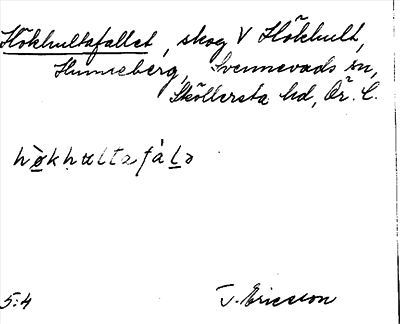 Hökhultafallet, skog V Hökhult,
Hunneberg, Svennevads sn,
Sköllersta hd, Ör. l.
hø̀kḥultafàlə
5:4 J. Ericsson